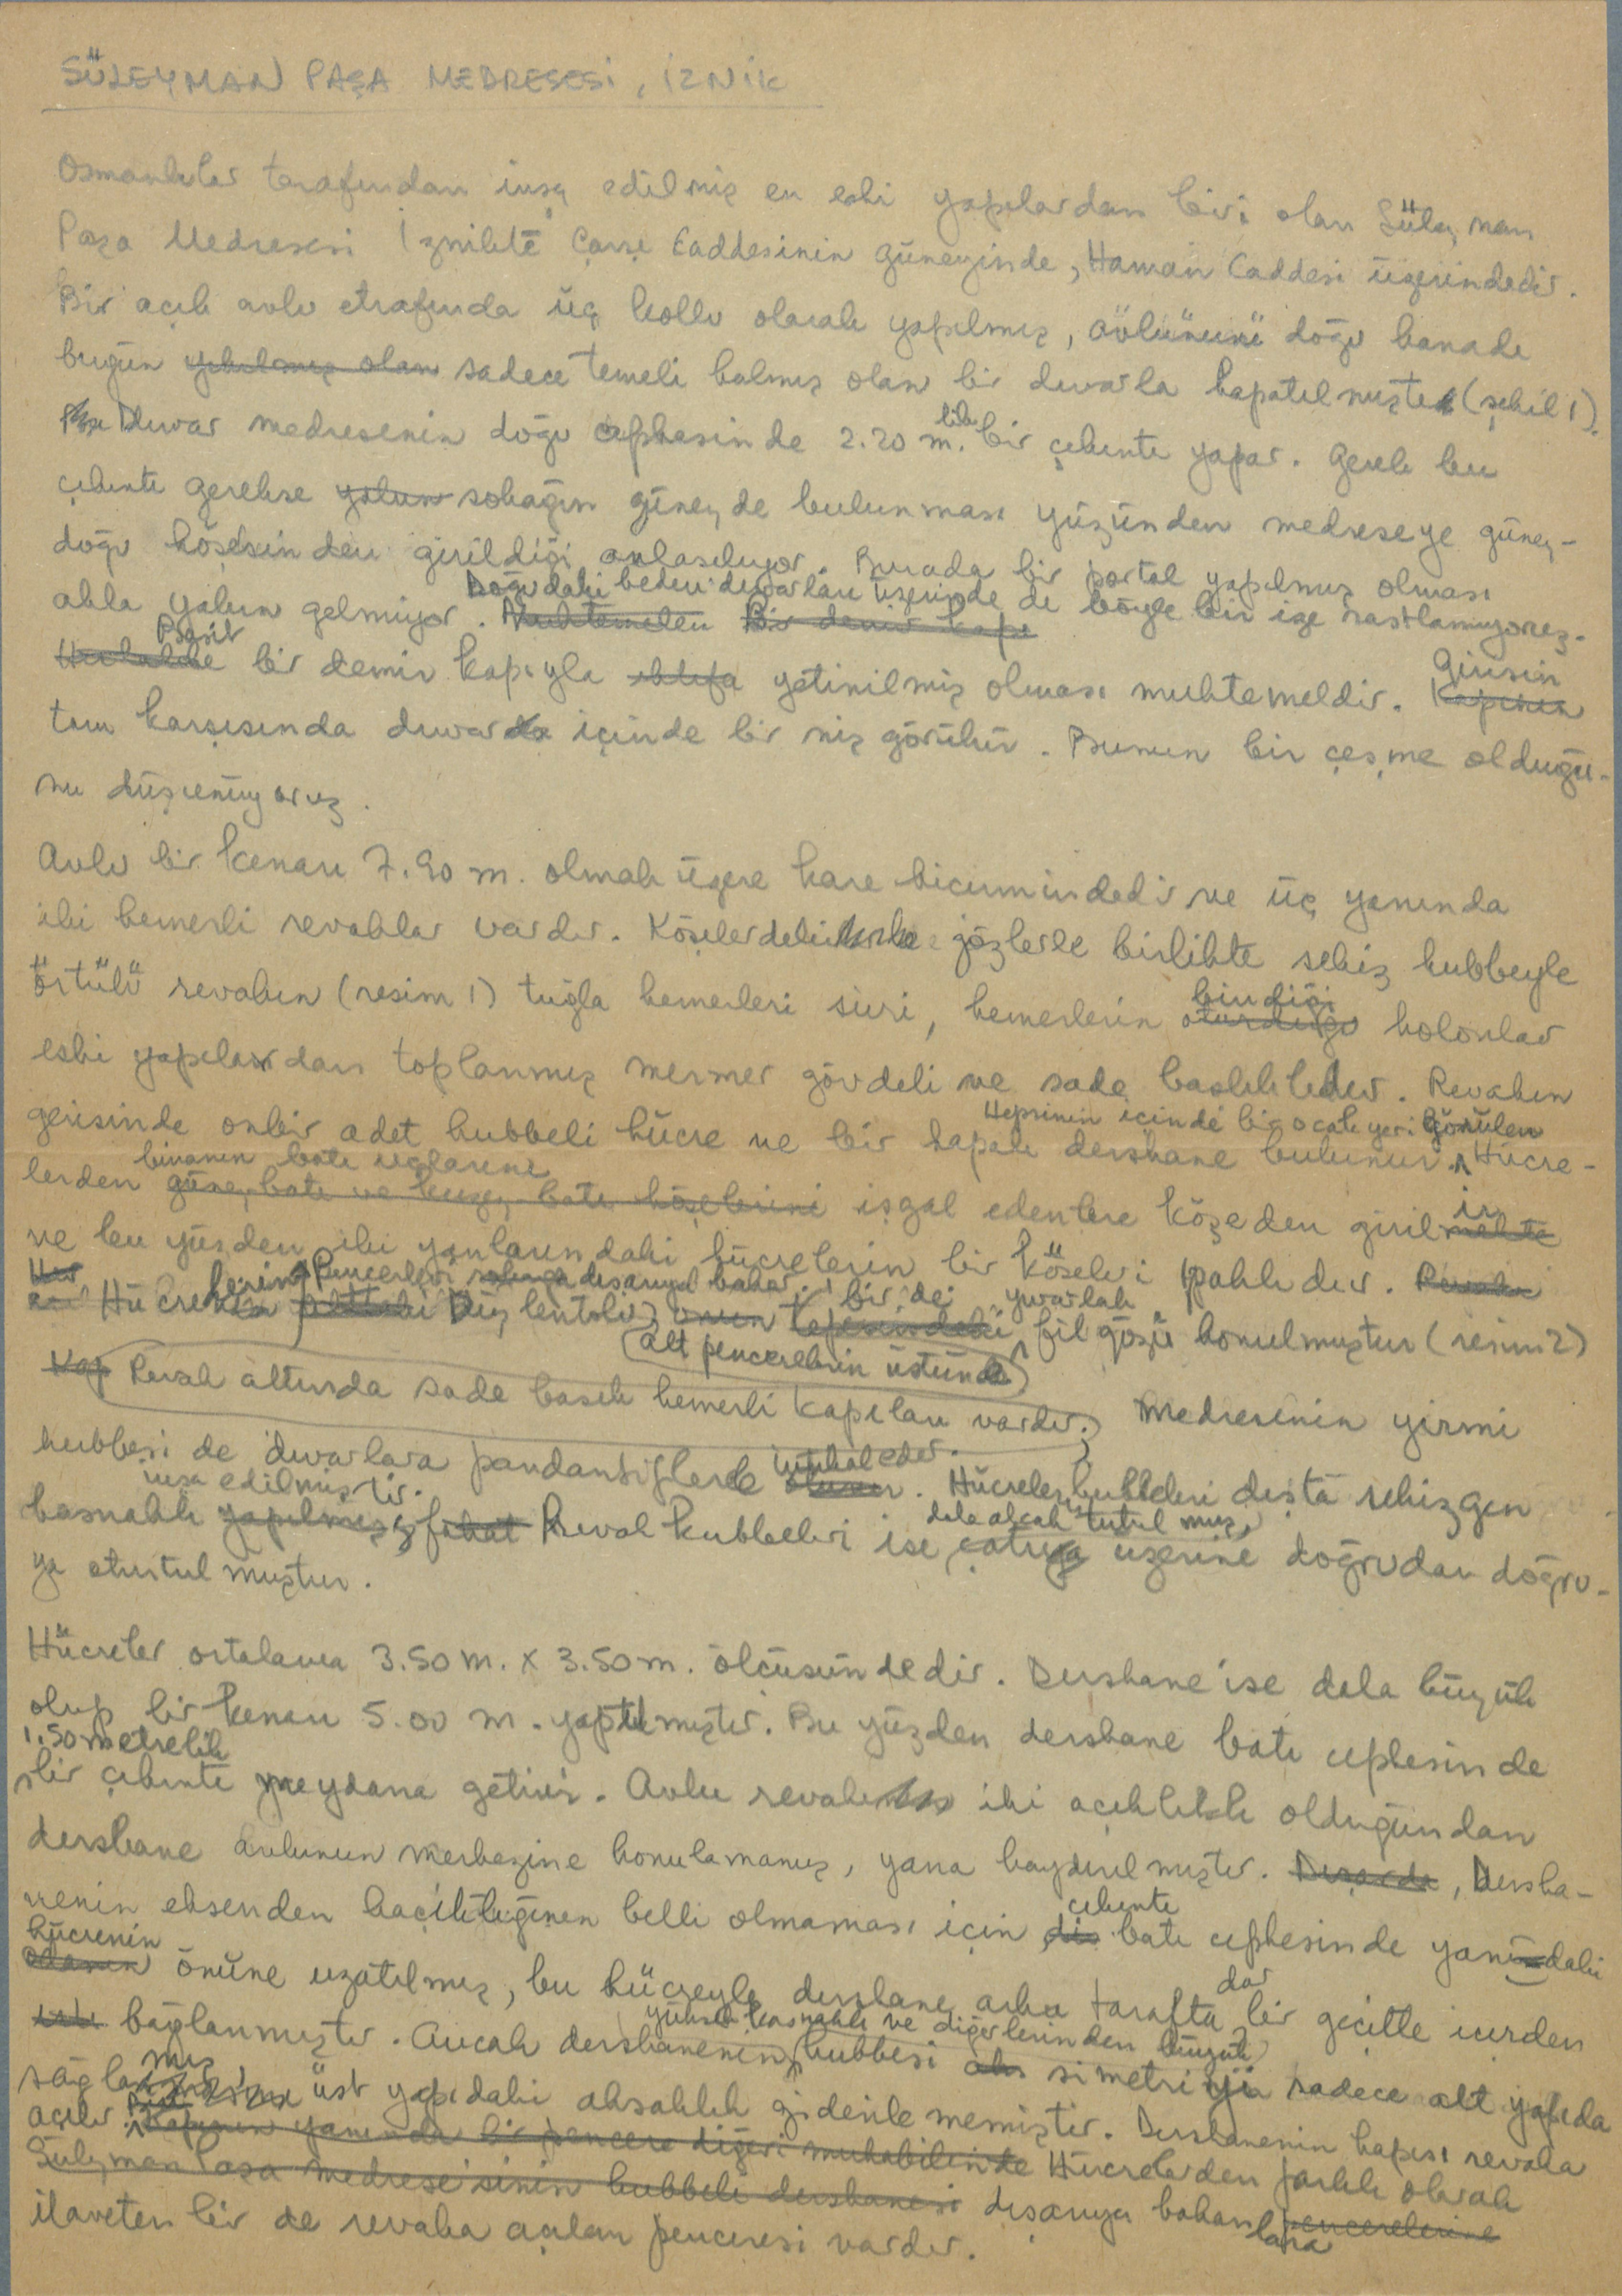 SÜLEYMAN PAŞA MEDRESESİ, İZNİK
Osmanlılar tarafından inşa edilmiş en eski yapılardan biri olan Süleyman
Paşa Medresesi İznikte Çarşı Caddesinin güneyinde, Hamam Caddesi üzerindedir.
Bir açık avlu etrafında üç kollu olarak yapılmış, avlunun doğu kanadı
bugün yıkılmış olan sadece temeli kalmış olan bir duvarla kapatılmıştı (şekil 1).
Duvar medresenin doğu cephesinde 2.20 m.lik bir çıkıntı yapar. Gerek bu
çıkıntı gerekse yolun sokağın güneyde bulunması yüzünden medreseye güney-
doğu köşesinden girildiği anlaşılıyor. Burada bir portal yapılmış olması
Doğudaki beden duvarları üzerinde de böyle bir ize rastlamıyoruz.
akla yakın gelmiyor. Muhtemelen Bir demir kapı
Basit
Herhalde bir demir kapıyla iktifa yetinilmiş olması muhtemeldir. Kapının
Girişin
tam karşısında duvarda içinde bir niş görülür. Bunun bir çeşme olduğu-
nu düşünüyoruz.
Avlu bir kenarı 7.90 m. olmak üzere kare biçimindedir ve üç yanında
iki kemerli revaklar vardır. Köşelerdeki gözlerle birlikte sekiz kubbeyle
örtülü revakın (resim 1) tuğla kemerleri sivri, kemerlerin oturduğu kolonlar
bindiği
eski yapılardan toplanmış mermer gövdeli ve sade başlıklıdır. Revakın
gerisinde onbir adet kubbeli hücre ve bir kapalı dershane bulunur. Hücre-
Hepsinin içinde bir ocak yeri görülen
binanın batı uçlarını
lerden güney batı ve kuzey batı köşelerini işgal edenlere köşeden girilmekte
ir
ve bu yüzden iki yanlarındaki hücrelerin bir köşeleri pahlıdır. Revakın
Her
Pencereleri sokağa dışarıya bakar.
Hücrelerin Düz lentolu, onun tepesindeki fil gözü konulmuştur (resim 2)
bir de yuvarlak
alt pencerelerin üstünde
Revak altında sade basık kemerli kapıları vardır. Medresenin yirmi
kubbesi de duvarlara pandantiflerle oturur. Hücreler kubbeleri dışta sekizgen
intikal eder.
inşa edilmiştir.
kasnaklı yapılmış, fakat Revak kubbeleri ise çatıya üzerine doğrudan doğru-
daha alçak tutulmuş,
ya oturtulmuştur.
Hücreler ortalama 3.50 m. x 3.50 m. ölçüsündedir. Dershane ise daha büyük
olup bir kenarı 5.00 m. yapılmıştır. Bu yüzden dershane batı cephesinde
1.50 metrelik
bir çıkıntı meydana getirir. Avlu revakı iki açıklıklı olduğundan
dershane avlunun merkezine konulamamış, yana kaydırılmıştır. Dışarda, Dersha-
nenin eksenden kaçıklığının belli olmaması için dış batı cephesinde yanındaki
çıkıntı
hücrenin
odanın önüne uzatılmış, bu hücreyle dershane arka tarafta bir geçitle içerden
dar
bağlanmıştır. Ancak dershanenin kubbesi simetriyi sadece alt yapıda
yüksek kasnaklı ve diğerlerinden büyük
sağlamış, üst yapıdaki aksaklık giderilememiştir. Dershanenin kapısı revaka
açılır. Kapının yanında bir pencere diğeri mukabilinde Hücrelerden farklı olarak
Süleyman Paşa Medrese'sinin kubbeli dershanesi dışarıya bakan pencerelerine
lara
ilaveten bir de revaka açılan penceresi vardır.